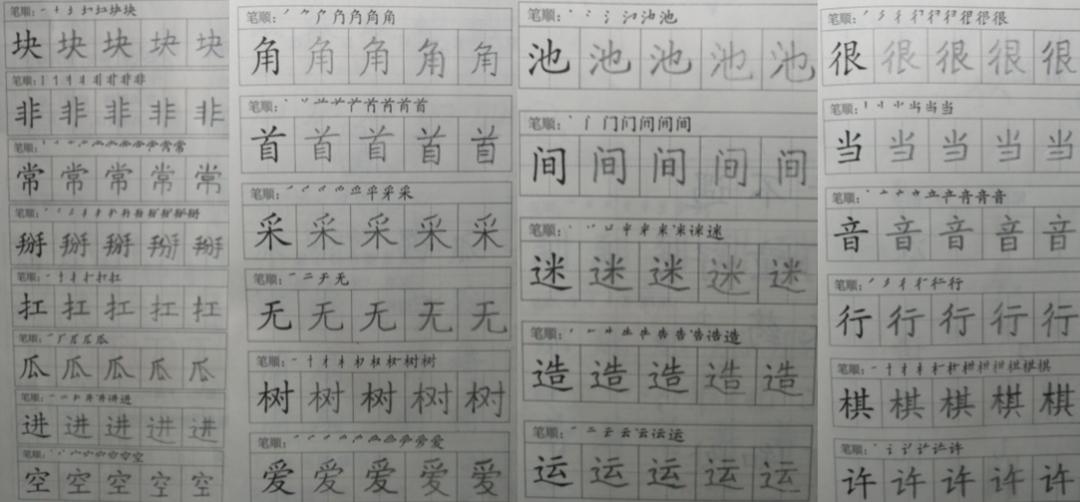 笔顺:
块块块块块
笔顺:
非非非非非
笔顺:
常常常常常
笔顺:
掰掰掰掰掰
笔顺:
扛扛扛扛扛
笔顺:
瓜瓜瓜瓜瓜
笔顺:
进进进进进
笔顺:
空空空空空
笔顺:
角角角角角
笔顺:
首首首首首
笔顺:
采采采采采
笔顺:
无无无无无
笔顺:
树树树树树
笔顺:
爱爱爱爱爱
笔顺:
池池池池池
笔顺:
间间间间间
笔顺:
迷迷迷迷迷
笔顺:
造造造造造
笔顺:
运运运运运
笔顺:
很很很很很
笔顺:
当当当当当
笔顺:
音音音音音
笔顺:
行行行行行
笔顺:
棋棋棋棋棋
笔顺:
许许许许许